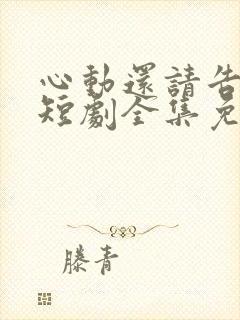 心動還請告
短劇全集免
滕青